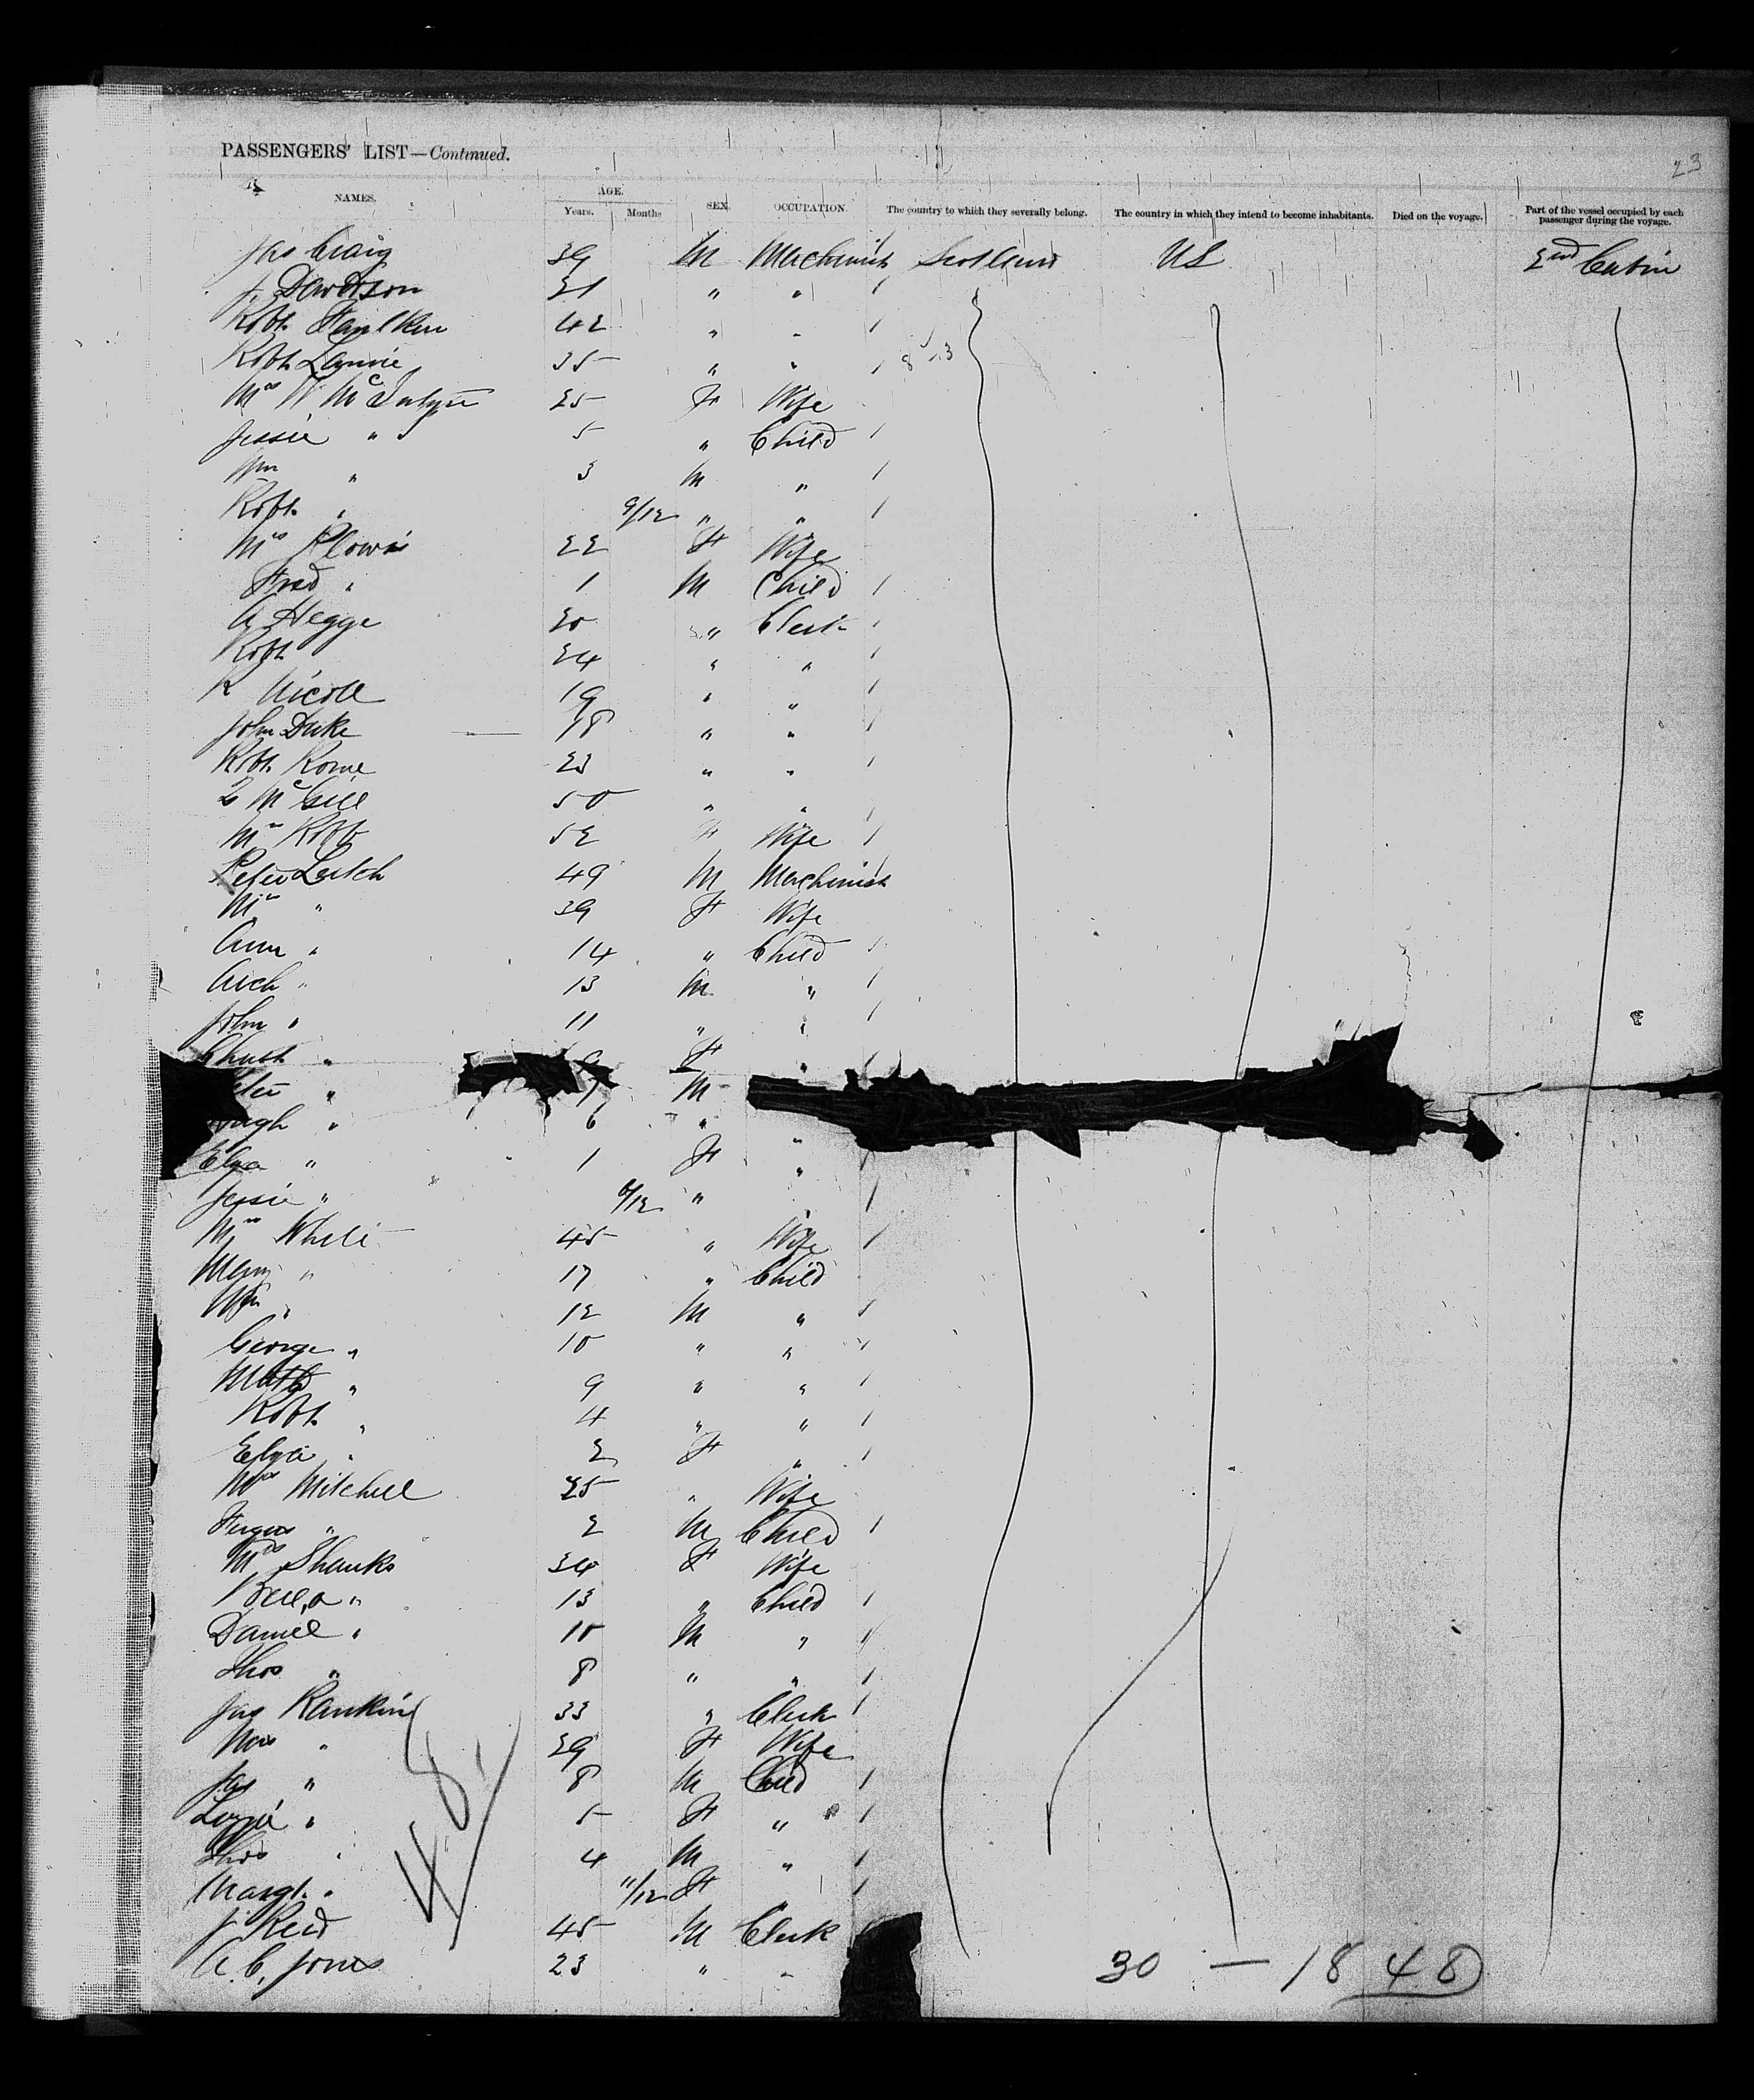 PASSENGERS' LIST—Continued.
23
NAMES. AGE. SEX. OCCUPATION. The country to which they severally belong. The country in which they intend to become inhabitants. Died on the voyage. Part of the vessel occupied by each passenger during the voyage.
Years. Months
Jas Craig 39 M Machinist Scotland US 2nd Cabin
J. Davidson 21 " "
Robt. 42 " "
Robt 35 " "
Mrs W McIntyre 25 F Wife
Jessie " 5 " Child
Wm " 3 M "
Robt. " 9/12 " "
Mrs 22 F Wife
Fred " 1 M Child
A Hegge 20 " Clerk
Robt 24 " "
R Nicoll 19 " "
John Duke 18 " "
Robt. Rome 23 " "
McGill 50 " "
Mrs Robb 52 F Wife
Peter Leitch 49 M Machinist
Mrs " 39 F Wife
Ann " 14 " Child
Arch " 13 M "
John " 11 " "
" F "
" 7 M
Hugh " 6 " "
Eliza " 1 F "
Jessie " /12 "
Mrs White 45 " Wife
" 17 " Child
Wm " 12 M "
George " 10 " "
" 9 " "
Robt. " 4 " "
Eliza " 2 F "
Mrs Mitchell 25 " Wife
Fergus " 2 M Child
Mrs Shanks 34 F Wife
" 13 " Child
Daniel " 10 M "
Thos " 8 " "
Jas Rankin 33 " Clerk
Mrs " 29 F Wife
Jas " 8 M Child
Lizzie " 5 F "
Thos " 4 M "
Margt. " 11/12 F
J. Reid 45 M Clerk
A. C. Jones 23 " "
48
30 — 18 48